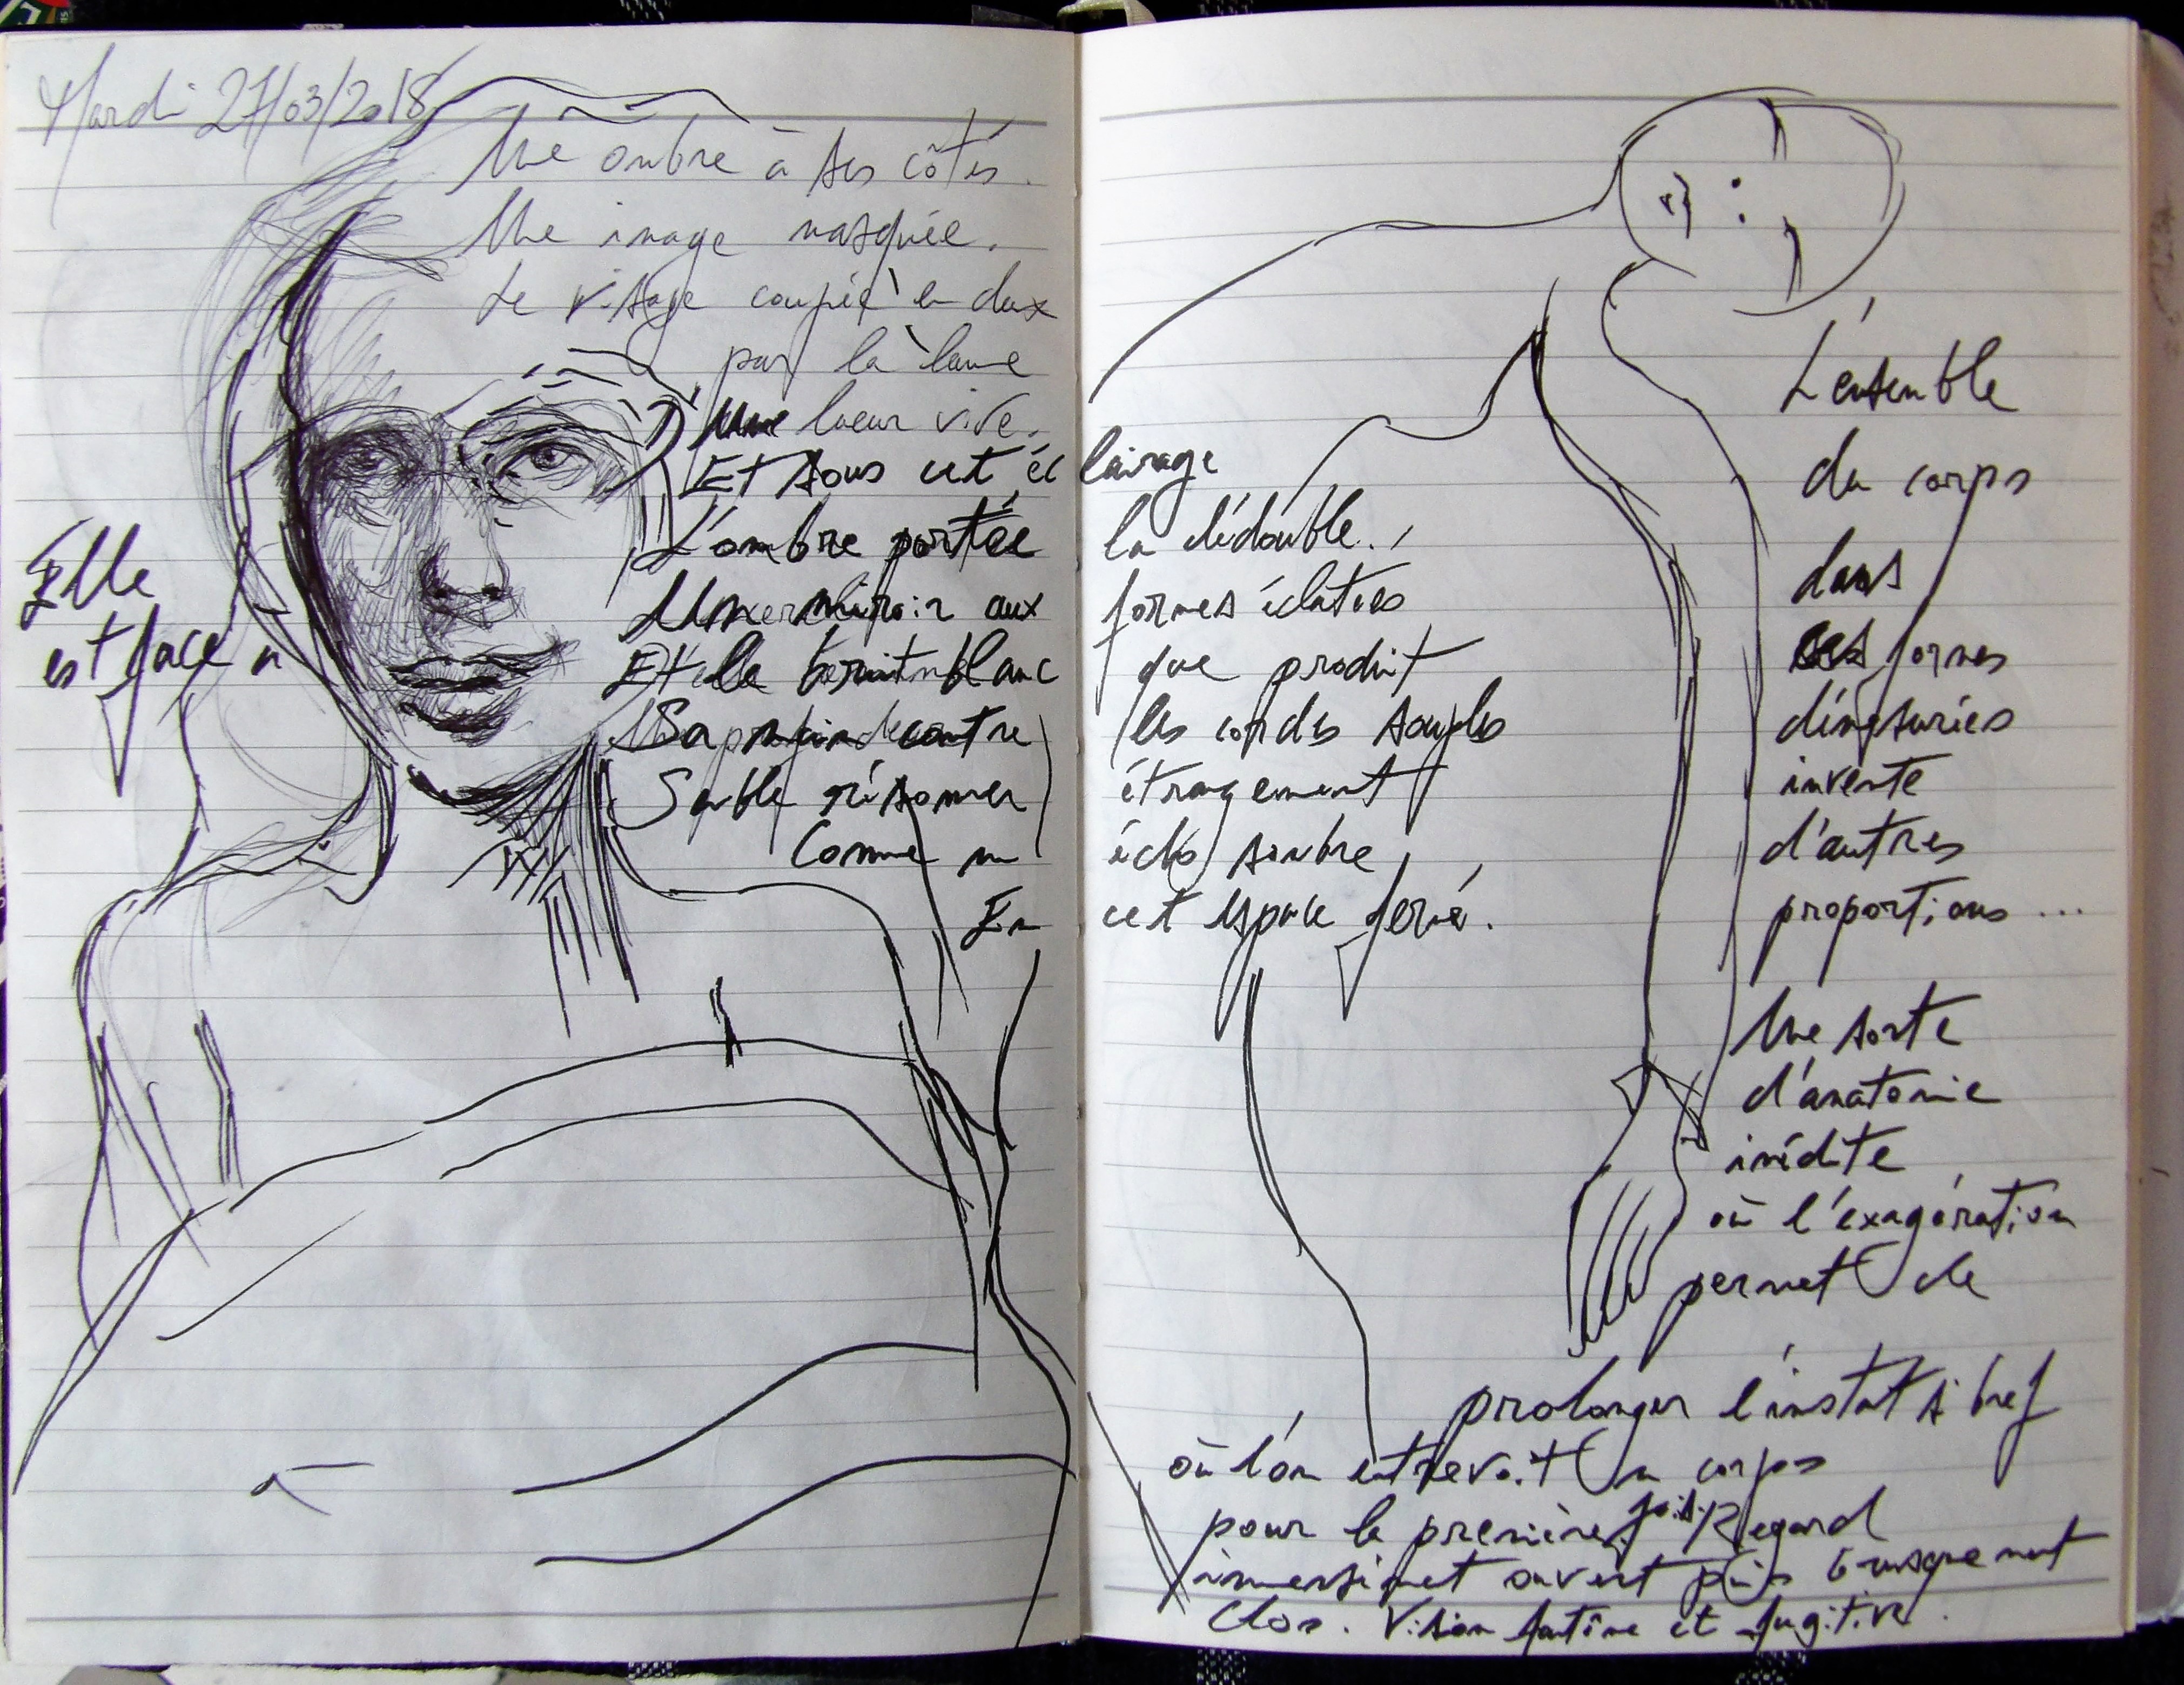 Mardi 27/03/2018
Une ombre à ses côtés.
Une image masquée.
Le visage coupé en deux
par la lame
Une lueur vive.
Et sous cet éclairage
L'ombre portée la dédouble.
Elle est face à
Un miroir aux formes éclatées
Et le bruit blanc que produit
Sa main contre les cordes souples
Semble résonner étrangement
Comme un écho sombre
En cet espace fermé.
L'ensemble
du corps
dans
ses formes
démesurées
invente
d'autres
proportions...
Une sorte
d'anatomie
inédite
où l'exagération
permet de
prolonger l'instant si bref
où l'on entrevoit un corps
pour la première fois. Regard
immensément ouvert puis brusquement
clos. Vision furtive et fugitive.